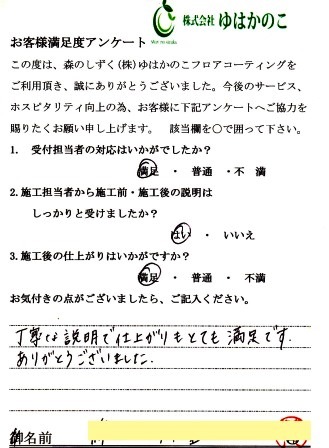 株式会社 ゆはかのこ
お客様満足度アンケート
この度は、森のしずく(株)ゆはかのこフロアコーティングを
ご利用頂き、誠にありがとうございました。今後のサービス、
ホスピタリティ向上の為、お客様に下記アンケートへご協力を
賜りたくお願い申し上げます。 該当欄を○で囲って下さい。
1. 受付担当者の対応はいかがでしたか？
満足 ・ 普通 ・不 満
2.施工担当者から施工前・施工後の説明は
しっかりと受けましたか？
はい ・ いいえ
3.施工後の仕上がりはいかがですか？
満足 ・ 普通 ・ 不満
お気付きの点がございましたら、ご記入ください。
丁寧な説明で仕上がりもとても満足です。
ありがとうございました。
名前